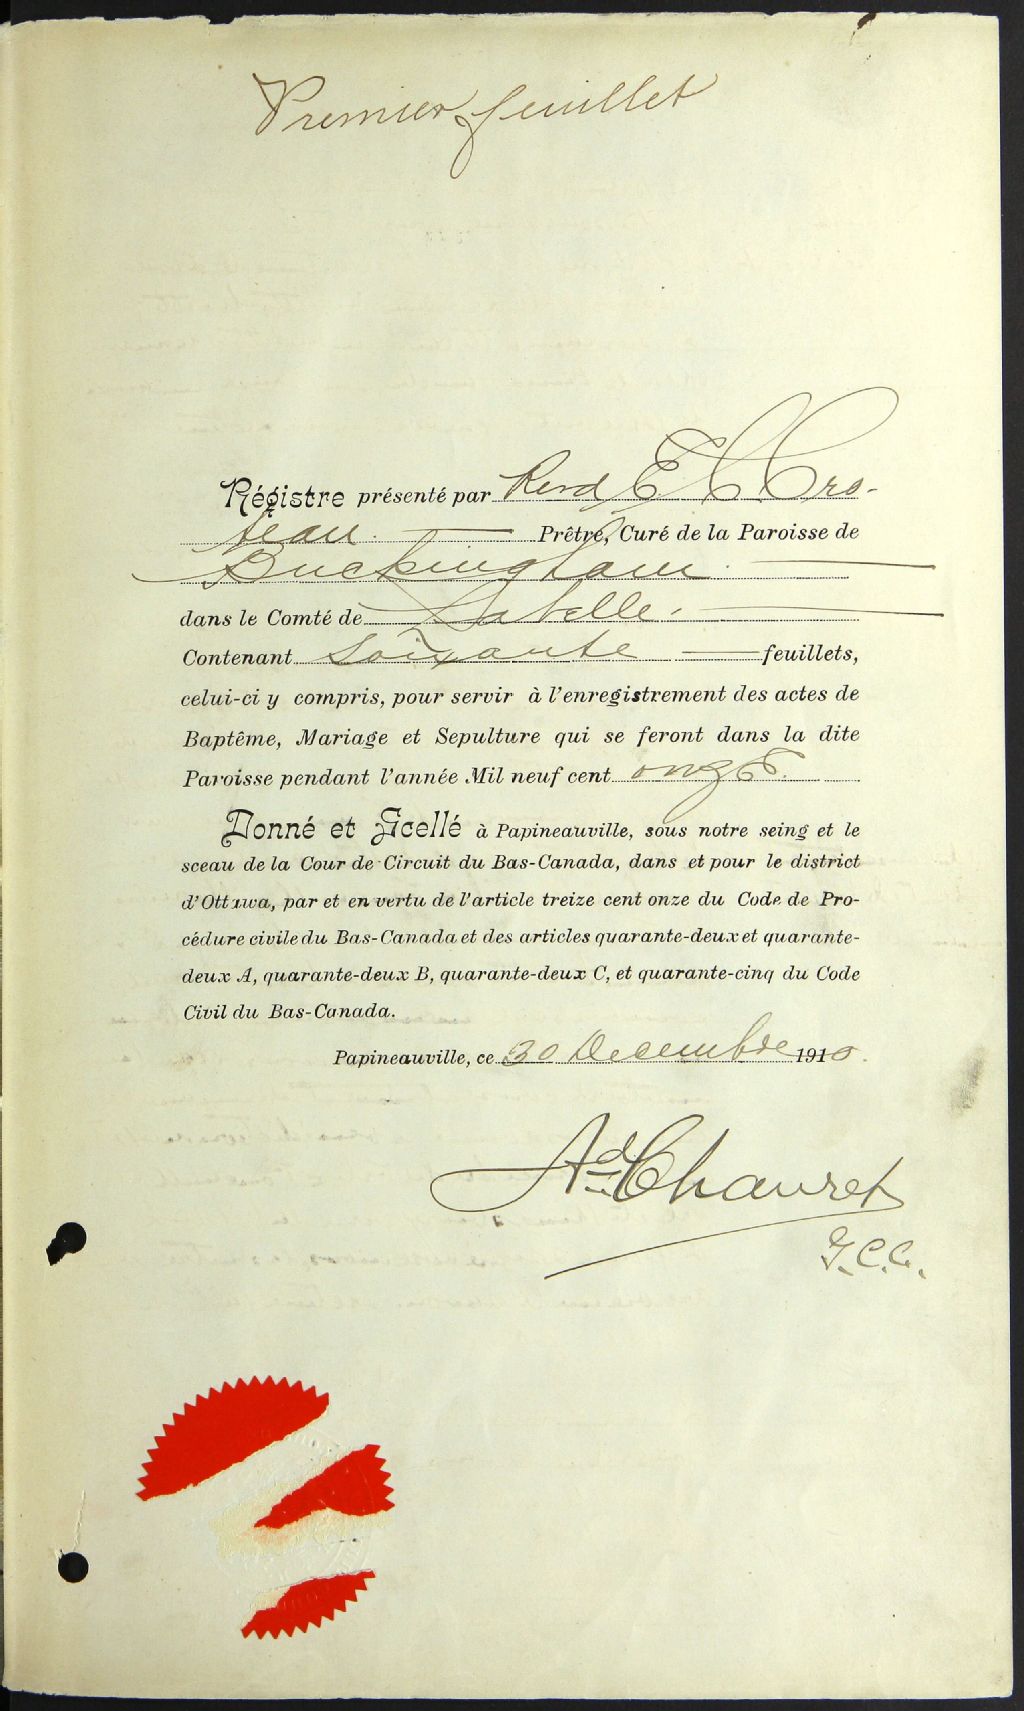 Premier feuillet
Régistre présenté par Revd E C Cro-
teau. Prêtre, Curé de la Paroisse de
Buckingham.
dans le Comté de Labelle.
Contenant Soixante feuillets,
celui-ci y compris, pour servir à l'enregistrement des actes de
Baptême, Mariage et Sepulture qui se feront dans la dite
Paroisse pendant l'année Mil neuf cent onze.
Donné et Scellé à Papineauville, sous notre seing et le
sceau de la Cour de Circuit du Bas-Canada, dans et pour le district
d'Ottawa, par et en vertu de l'article treize cent onze du Code de Pro-
cédure civile du Bas-Canada et des articles quarante-deux et quarante-
deux A, quarante-deux B, quarante-deux C, et quarante-cinq du Code
Civil du Bas-Canada.
Papineauville, ce 30 Decembre 1910.
Ad Chauret
G.C.C.